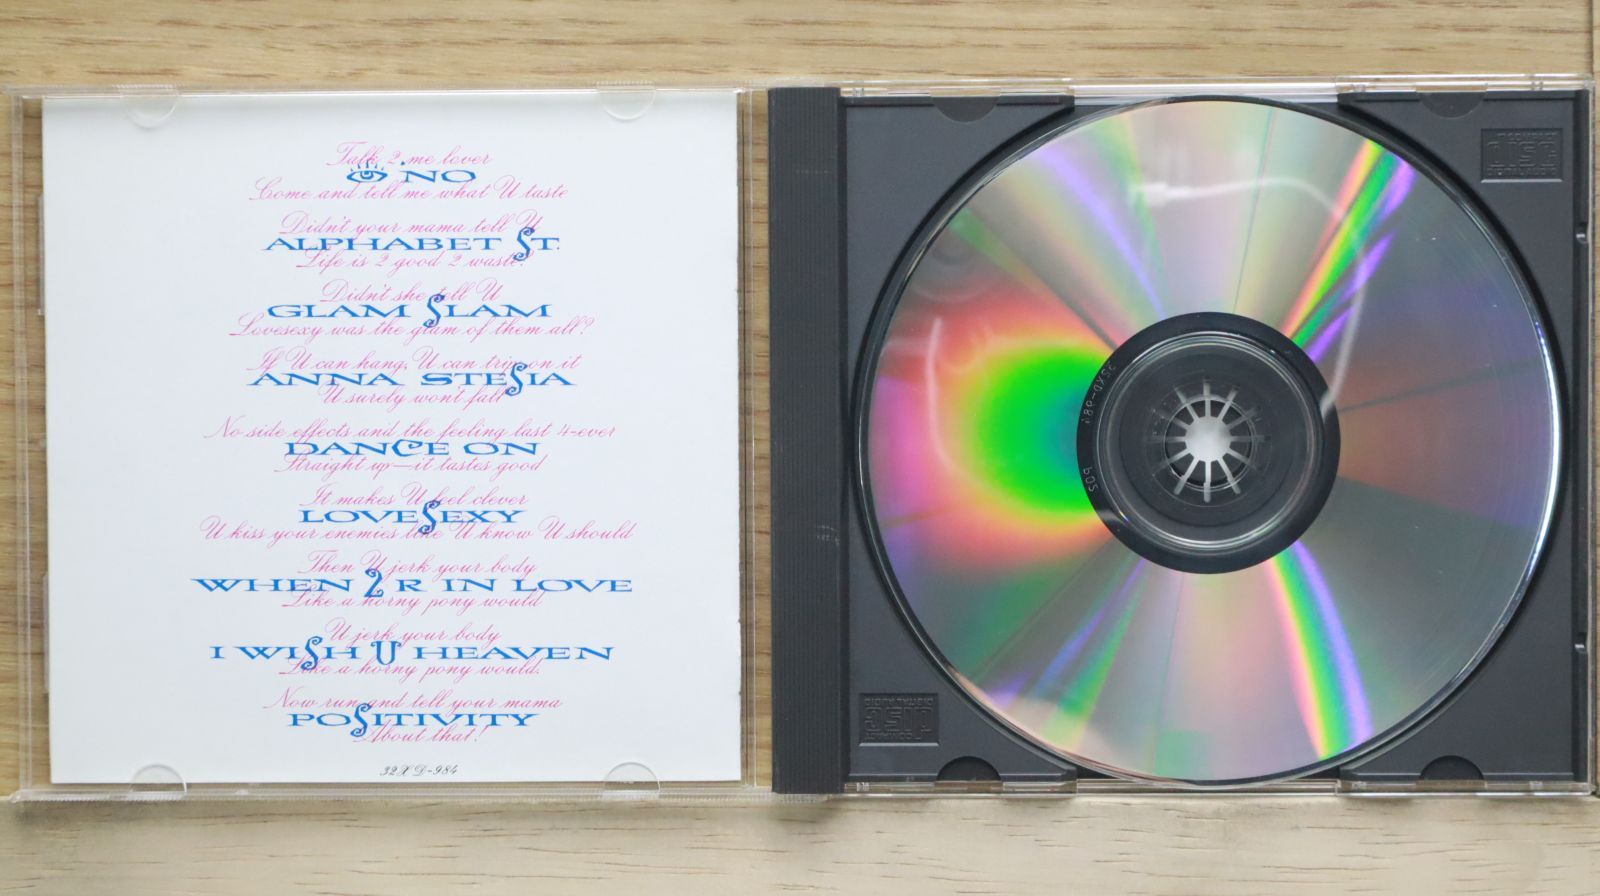 Talk 2 me lover
👁 NO
Come and tell me what U taste
Didn't your mama tell U
ALPHABET ST.
Life is 2 good 2 waste?
Didn't she tell U
GLAM SLAM
Lovesexy was the glam of them all?
If U can hang, U can trip on it
ANNA STESIA
U surely won't fall
No side effects and the feeling last 4-ever
DANCE ON
Straight up—it tastes good
It makes U feel clever
LOVESEXY
U kiss your enemies like U know U should
Then U jerk your body
WHEN 2 R IN LOVE
Like a horny pony would
U jerk your body
I WISH U HEAVEN
Like a horny pony would.
Now run and tell your mama
POSITIVITY
About that!
32XD-984
COMPACT
disc
DIGITAL AUDIO
32XD-984
COMPACT
disc
DIGITAL AUDIO